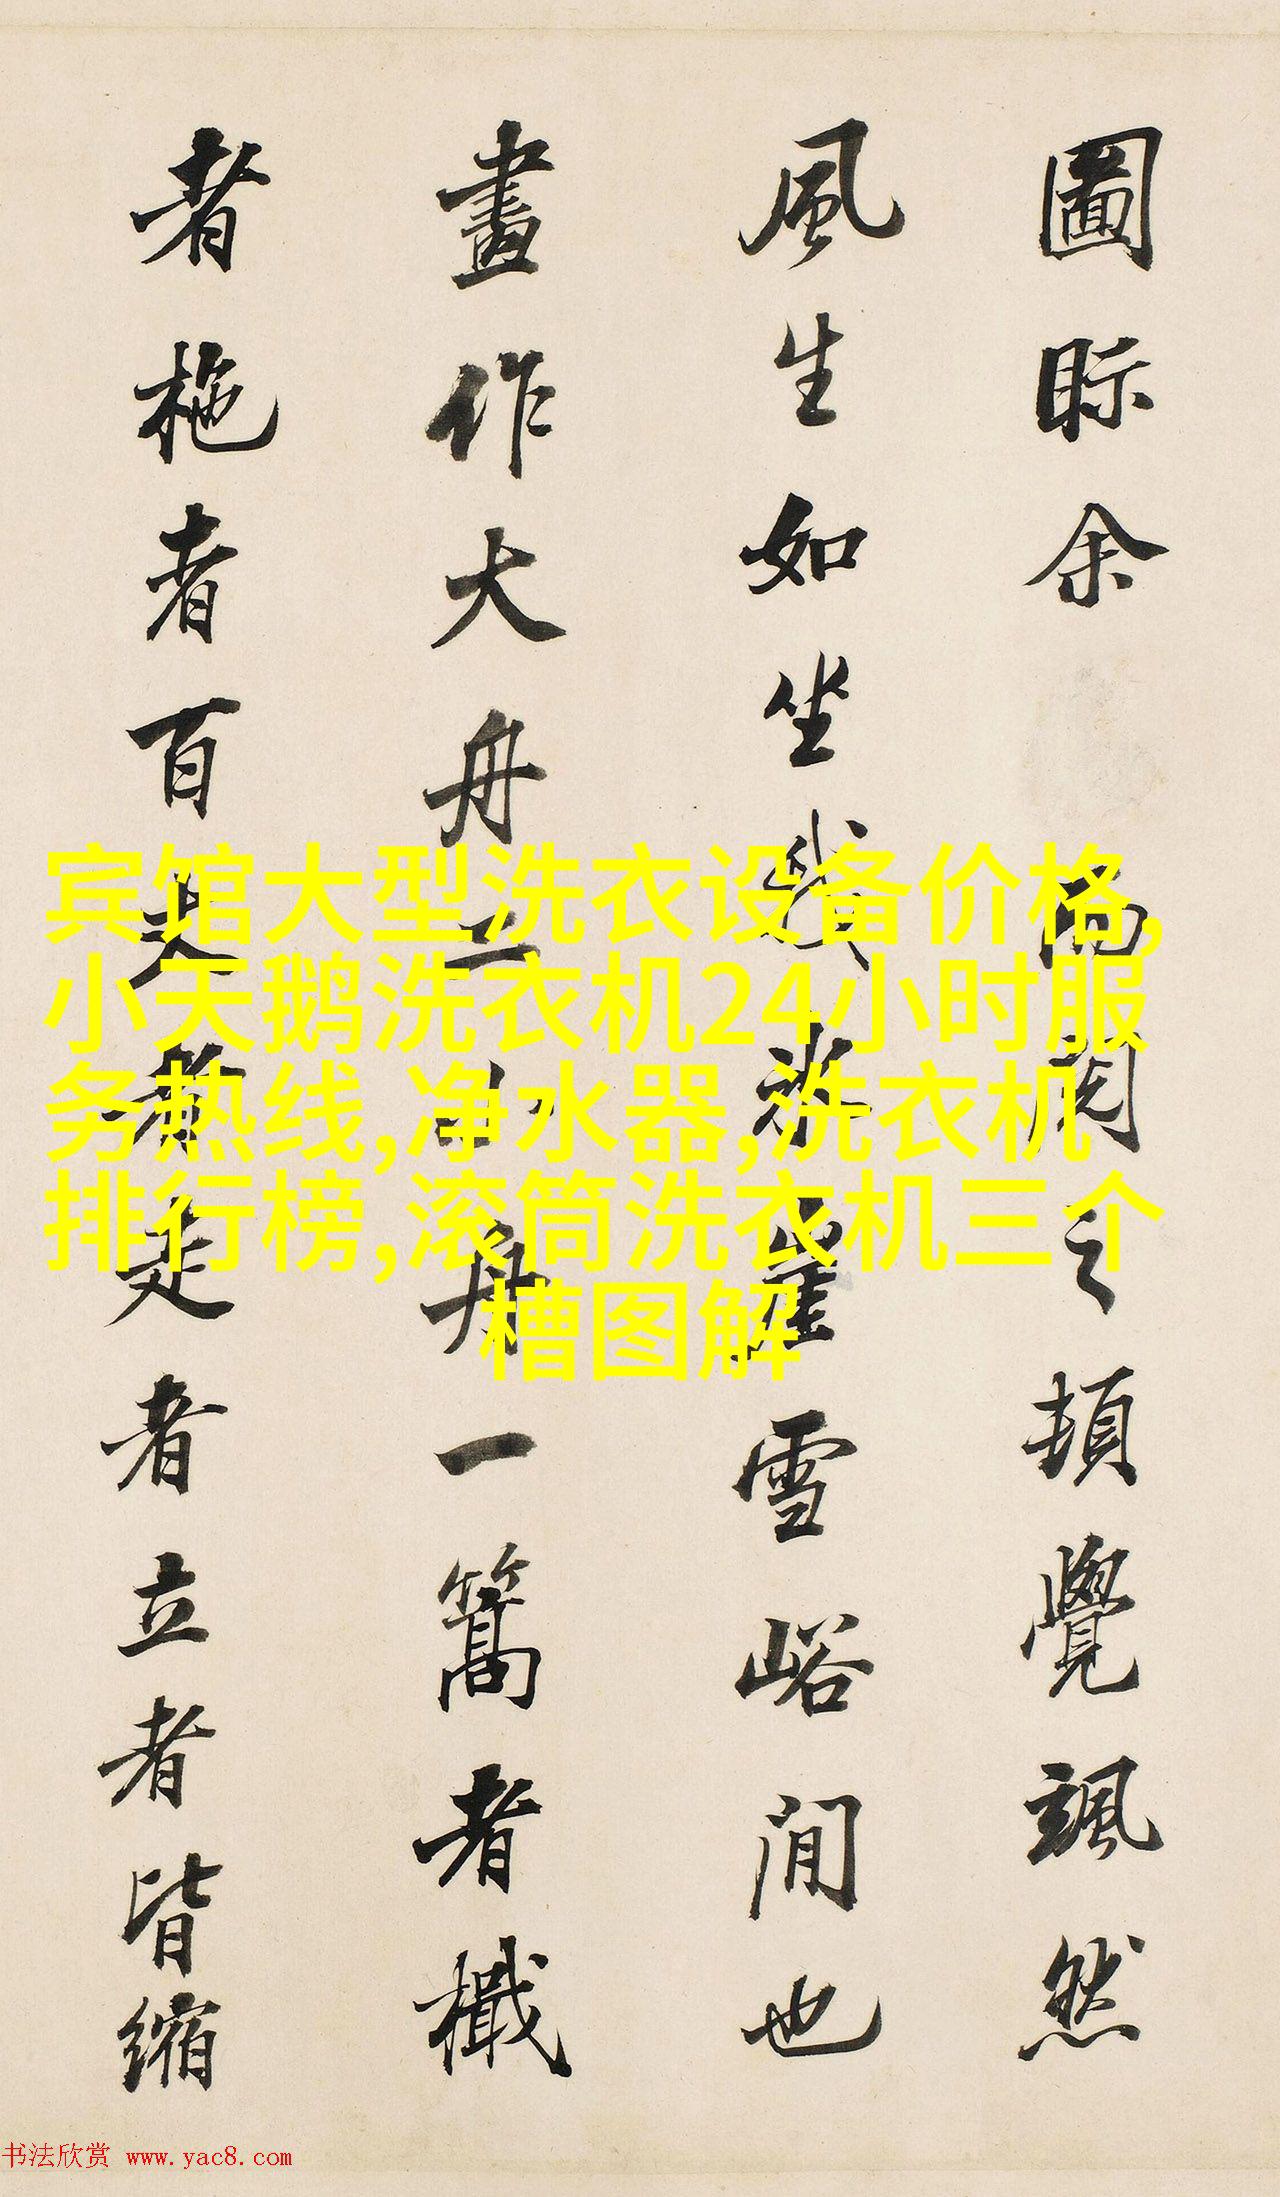 圖眎余閱之頓覺颯然
風生如坐我冰崖雪峪間也
畫作大舟二小舟一篙者檝
者柂者百丈者走者立者皆縮
宾馆大型洗衣设备价格,
小天鹅洗衣机24小时服
务热线,净水器,洗衣机
排行榜,滚筒洗衣机三个
槽图解
书法欣赏 www.yac8.com